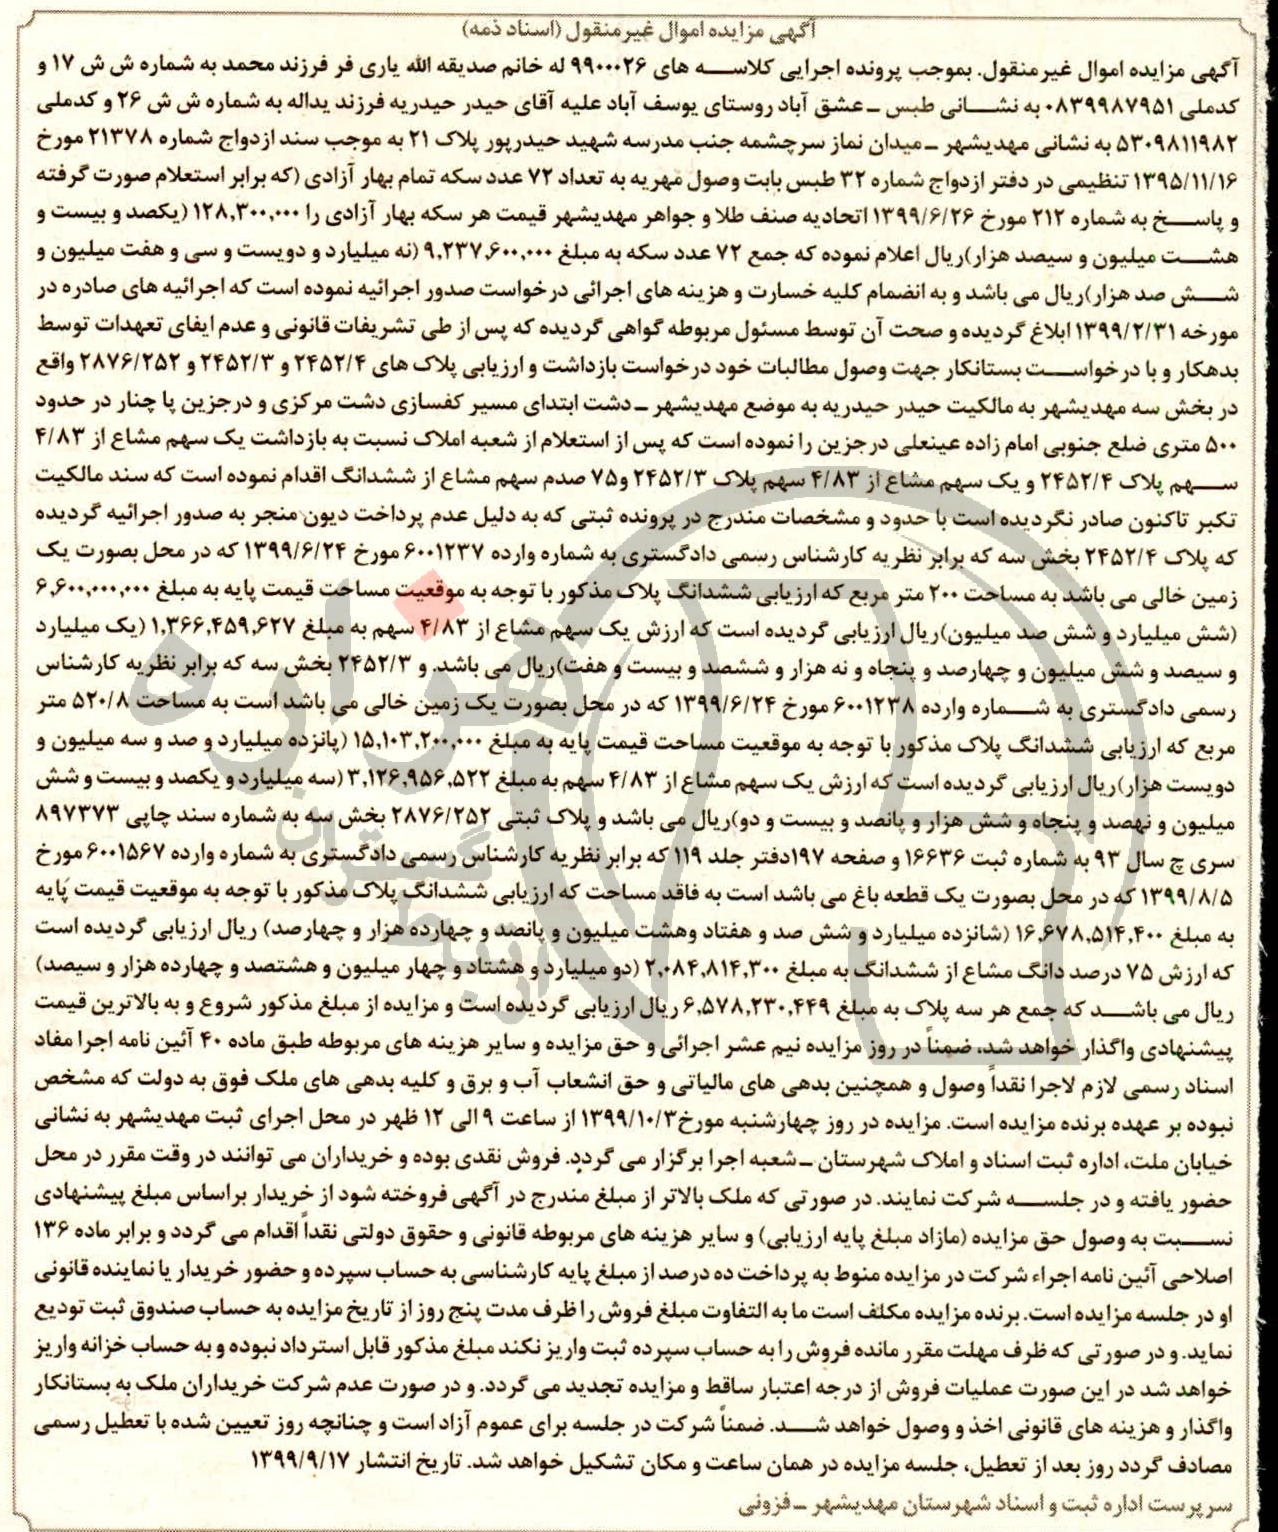 آگهی مزایده اموال غیرمنقول (اسناد ذمه)
آگهی مزایده اموال غیرمنقول. بموجب پرونده اجرایی کلاسه های ۹۹۰۰۰۲۶ له خانم صدیقه الله یاری فر فرزند محمد به شماره ش ش ۱۷ و
کدملی ۰۸۳۹۹۸۷۹۵۱ به نشانی طبس ـ عشق آباد روستای یوسف آباد علیه آقای حیدر حیدریه فرزند یداله به شماره ش ش ۲۶ و کدملی
۵۳۰۹۸۱۱۹۸۲ به نشانی مهدیشهر ـ میدان نماز سرچشمه جنب مدرسه شهید حیدرپور پلاک ۲۱ به موجب سند ازدواج شماره ۲۱۳۷۸ مورخ
۱۳۹۵/۱۱/۱۶ تنظیمی در دفتر ازدواج شماره ۳۲ طبس بابت وصول مهریه به تعداد ۷۲ عدد سکه تمام بهار آزادی (که برابر استعلام صورت گرفته
و پاسخ به شماره ۲۱۲ مورخ ۱۳۹۹/۶/۲۶ اتحادیه صنف طلا و جواهر مهدیشهر قیمت هر سکه بهار آزادی را ۱۲۸,۳۰۰,۰۰۰ (یکصد و بیست و
هشت میلیون و سیصد هزار)ریال اعلام نموده که جمع ۷۲ عدد سکه به مبلغ ۹,۲۳۷,۶۰۰,۰۰۰ (نه میلیارد و دویست و سی و هفت میلیون و
شش صد هزار)ریال می باشد و به انضمام کلیه خسارت و هزینه های اجرائی درخواست صدور اجرائیه نموده است که اجرائیه های صادره در
مورخه ۱۳۹۹/۲/۳۱ ابلاغ گردیده و صحت آن توسط مسئول مربوطه گواهی گردیده که پس از طی تشریفات قانونی و عدم ایفای تعهدات توسط
بدهکار و با درخواست بستانکار جهت وصول مطالبات خود درخواست بازداشت و ارزیابی پلاک های ۲۴۵۲/۴ و ۲۴۵۲/۳ و ۲۸۷۶/۲۵۲ واقع
در بخش سه مهدیشهر به مالکیت حیدر حیدریه به موضع مهدیشهر ـ دشت ابتدای مسیر کفسازی دشت مرکزی و درجزین پا چنار در حدود
۵۰۰ متری ضلع جنوبی امام زاده عینعلی درجزین را نموده است که پس از استعلام از شعبه املاک نسبت به بازداشت یک سهم مشاع از ۴/۸۳
سهم پلاک ۲۴۵۲/۴ و یک سهم مشاع از ۴/۸۳ سهم پلاک ۲۴۵۲/۳ و۷۵ صدم سهم مشاع از ششدانگ اقدام نموده است که سند مالکیت
تکبر تاکنون صادر نگردیده است با حدود و مشخصات مندرج در پرونده ثبتی که به دلیل عدم پرداخت دیون منجر به صدور اجرائیه گردیده
که پلاک ۲۴۵۲/۴ بخش سه که برابر نظریه کارشناس رسمی دادگستری به شماره وارده ۶۰۰۱۲۳۷ مورخ ۱۳۹۹/۶/۲۴ که در محل بصورت یک
زمین خالی می باشد به مساحت ۲۰۰ متر مربع که ارزیابی ششدانگ پلاک مذکور با توجه به موقعیت مساحت قیمت پایه به مبلغ ۶,۶۰۰,۰۰۰,۰۰۰
(شش میلیارد و شش صد میلیون)ریال ارزیابی گردیده است که ارزش یک سهم مشاع از ۴/۸۳ سهم به مبلغ ۱,۳۶۶,۴۵۹,۶۲۷ (یک میلیارد
و سیصد و شش میلیون و چهارصد و پنجاه و نه هزار و ششصد و بیست و هفت)ریال می باشد. و ۲۴۵۲/۳ بخش سه که برابر نظریه کارشناس
رسمی دادگستری به شماره وارده ۶۰۰۱۲۳۸ مورخ ۱۳۹۹/۶/۲۴ که در محل بصورت یک زمین خالی می باشد است به مساحت ۵۲۰/۸ متر
مربع که ارزیابی ششدانگ پلاک مذکور با توجه به موقعیت مساحت قیمت پایه به مبلغ ۱۵,۱۰۳,۲۰۰,۰۰۰ (پانزده میلیارد و صد و سه میلیون و
دویست هزار)ریال ارزیابی گردیده است که ارزش یک سهم مشاع از ۴/۸۳ سهم به مبلغ ۳,۱۲۶,۹۵۶,۵۲۲ (سه میلیارد و یکصد و بیست و شش
میلیون و نهصد و پنجاه و شش هزار و پانصد و بیست و دو)ریال می باشد و پلاک ثبتی ۲۸۷۶/۲۵۲ بخش سه به شماره سند چاپی ۸۹۷۳۷۳
سری چ سال ۹۳ به شماره ثبت ۱۶۶۳۶ و صفحه ۱۹۷دفتر جلد ۱۱۹ که برابر نظریه کارشناس رسمی دادگستری به شماره وارده ۶۰۰۱۵۶۷ مورخ
۱۳۹۹/۸/۵ که در محل بصورت یک قطعه باغ می باشد است به فاقد مساحت که ارزیابی ششدانگ پلاک مذکور با توجه به موقعیت قیمت پایه
به مبلغ ۱۶,۶۷۸,۵۱۴,۴۰۰ (شانزده میلیارد و شش صد و هفتاد وهشت میلیون و پانصد و چهارده هزار و چهارصد) ریال ارزیابی گردیده است
که ارزش ۷۵ درصد دانگ مشاع از ششدانگ به مبلغ ۲,۰۸۴,۸۱۴,۳۰۰ (دو میلیارد و هشتاد و چهار میلیون و هشتصد و چهارده هزار و سیصد)
ریال می باشد که جمع هر سه پلاک به مبلغ ۶,۵۷۸,۲۳۰,۴۴۹ ریال ارزیابی گردیده است و مزایده از مبلغ مذکور شروع و به بالاترین قیمت
پیشنهادی واگذار خواهد شد. ضمناً در روز مزایده نیم عشر اجرائی و حق مزایده و سایر هزینه های مربوطه طبق ماده ۴۰ آئین نامه اجرا مفاد
اسناد رسمی لازم لاجرا نقداً وصول و همچنین بدهی های مالیاتی و حق انشعاب آب و برق و کلیه بدهی های ملک فوق به دولت که مشخص
نبوده بر عهده برنده مزایده است. مزایده در روز چهارشنبه مورخ۱۳۹۹/۱۰/۳ از ساعت ۹ الی ۱۲ ظهر در محل اجرای ثبت مهدیشهر به نشانی
خیابان ملت، اداره ثبت اسناد و املاک شهرستان ـ شعبه اجرا برگزار می گردد. فروش نقدی بوده و خریداران می توانند در وقت مقرر در محل
حضور یافته و در جلسه شرکت نمایند. در صورتی که ملک بالاتر از مبلغ مندرج در آگهی فروخته شود از خریدار براساس مبلغ پیشنهادی
نسبت به وصول حق مزایده (مازاد مبلغ پایه ارزیابی) و سایر هزینه های مربوطه قانونی و حقوق دولتی نقداً اقدام می گردد و برابر ماده ۱۳۶
اصلاحی آئین نامه اجراء شرکت در مزایده منوط به پرداخت ده درصد از مبلغ پایه کارشناسی به حساب سپرده و حضور خریدار یا نماینده قانونی
او در جلسه مزایده است. برنده مزایده مکلف است ما به التفاوت مبلغ فروش را ظرف مدت پنج روز از تاریخ مزایده به حساب صندوق ثبت تودیع
نماید. و در صورتی که ظرف مهلت مقرر مانده فروش را به حساب سپرده ثبت واریز نکند مبلغ مذکور قابل استرداد نبوده و به حساب خزانه واریز
خواهد شد در این صورت عملیات فروش از درجه اعتبار ساقط و مزایده تجدید می گردد. و در صورت عدم شرکت خریداران ملک به بستانکار
واگذار و هزینه های قانونی اخذ و وصول خواهد شد. ضمناً شرکت در جلسه برای عموم آزاد است و چنانچه روز تعیین شده با تعطیل رسمی
مصادف گردد روز بعد از تعطیل، جلسه مزایده در همان ساعت و مکان تشکیل خواهد شد. تاریخ انتشار ۱۳۹۹/۹/۱۷
سرپرست اداره ثبت و اسناد شهرستان مهدیشهر ـ فزونی